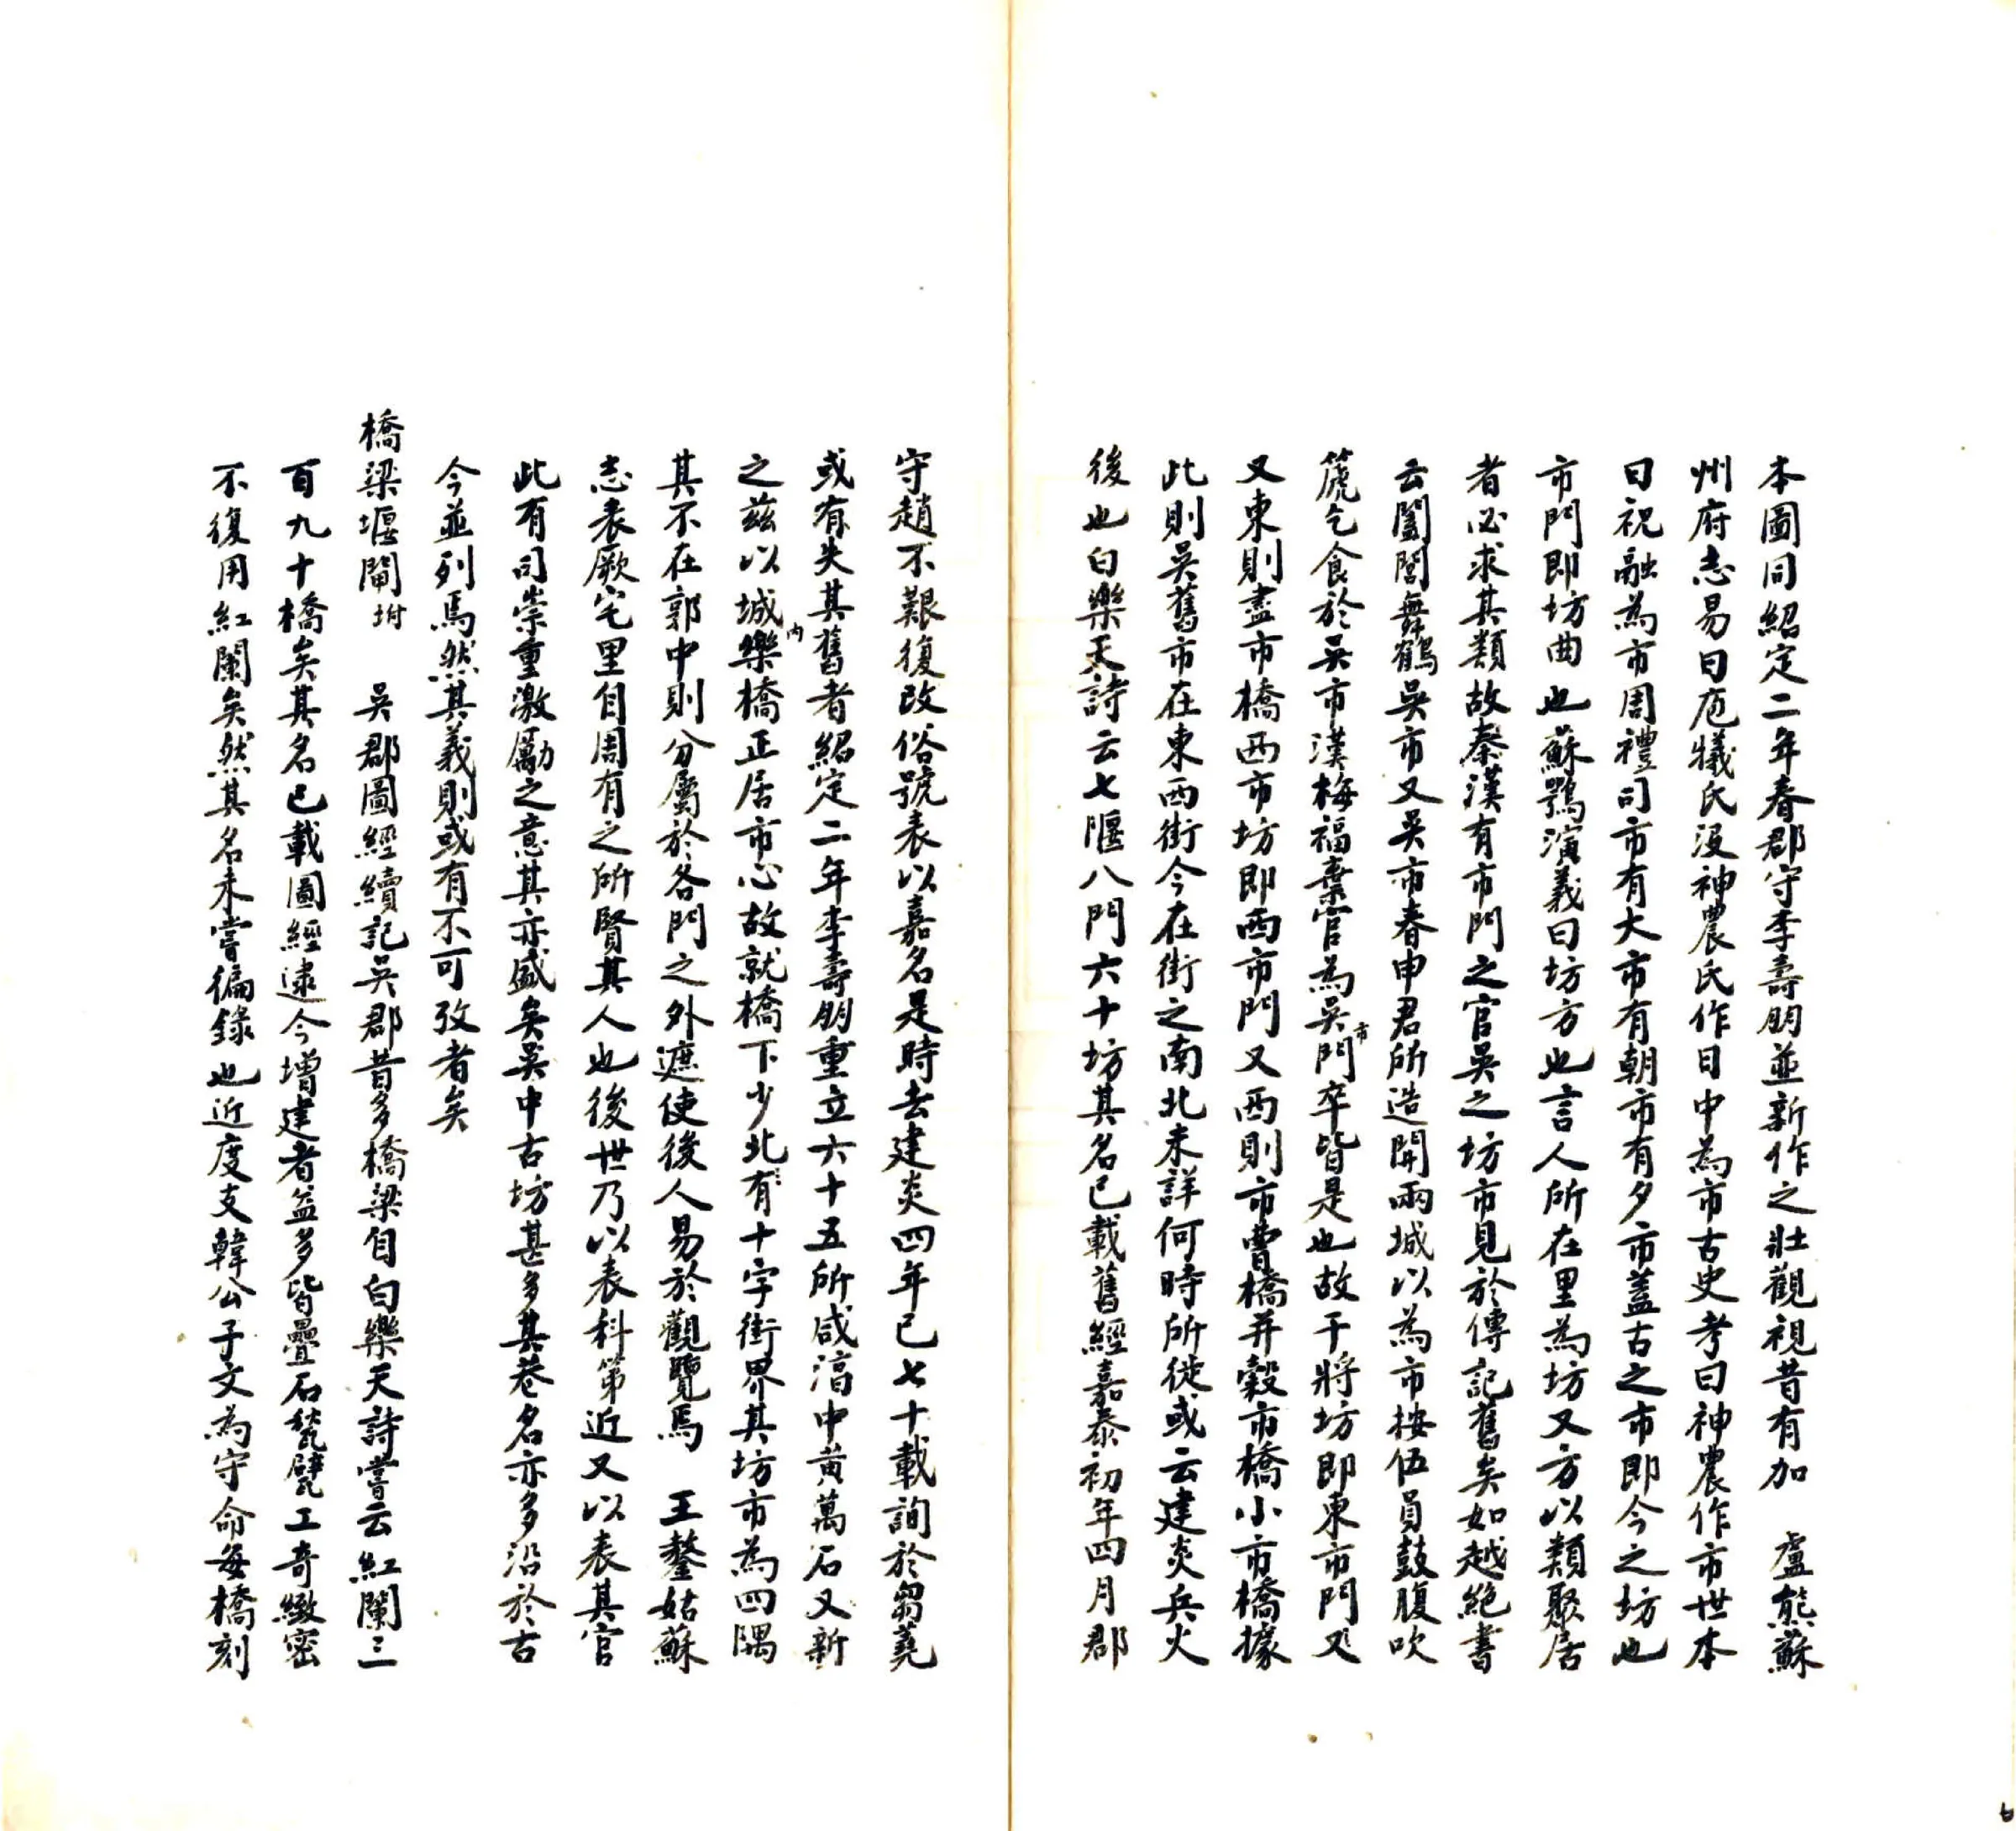 本圖同紹定二年春郡守李壽朋並新作之壯觀視昔有加　盧熊蘇
州府志易曰庖犧氏沒神農氏作日中為市古史考曰神農作市世本
曰祝融為市周禮司市有大市有朝市有夕市蓋古之市即今之坊也
市門即坊曲也蘇鶚演義曰坊方也言人所在里為坊又方以類聚居
者必求其類故秦漢有市門之官吳之坊市見於傳記舊矣如越絕書
云闔閭舞鶴吳市又吳市春申君所造開兩城以為市按伍員鼓腹吹
篪乞食於吳市漢梅福棄官為吳市門卒皆是也故干將坊即東市門又
又東則盡市橋西市坊即西市門又西則市曹橋并穀市橋小市橋據
此則吳舊市在東西街今在街之南北未詳何時所徙或云建炎兵火
後也白樂天詩云七堰八門六十坊其名已載舊經嘉泰初年四月郡
守趙不艱復改俗號表以嘉名是時去建炎四年已七十載詢於芻蕘
或有失其舊者紹定二年李壽朋重立六十五所咸淳中黃萬石又新
之茲以城內樂橋正居市心故就橋下少北有十字街界其坊市為四隅
其不在郭中則分屬於各門之外遮使後人易於觀覽焉　王鏊姑蘇
志表厥宅里自周有之所賢其人也後世乃以表科第近又以表其官
此有司崇重激勵之意其亦盛矣吳中古坊甚多其巷名亦多沿於古
今並列焉然其義則或有不可攷者矣
橋梁堰閘坿　吳郡圖經續記吳郡昔多橋梁自白樂天詩嘗云紅闌三
百九十橋矣其名已載圖經逮今增建者益多皆疊石甃甓工奇緻密
不復用紅闌矣然其名未嘗徧錄也近度支韓公子文為守命每橋刻